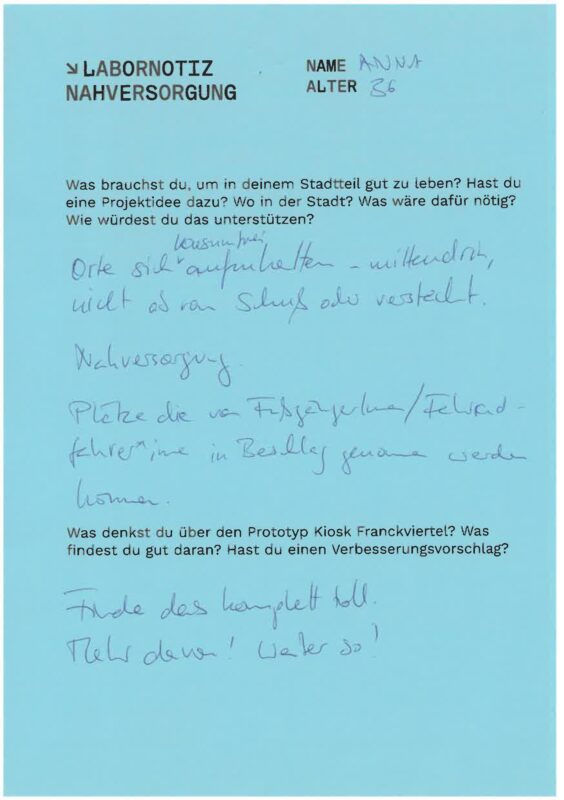 ↘ LABORNOTIZ
NAHVERSORGUNG
NAME ANNA
ALTER 36
Was brauchst du, um in deinem Stadtteil gut zu leben? Hast du
eine Projektidee dazu? Wo in der Stadt? Was wäre dafür nötig?
Wie würdest du das unterstützen?
konsumfrei
Orte sich aufzuhalten – mittendrin,
nicht ab vom Schuß oder versteckt.
Nahversorgung.
Plätze die von Fußgänger*innen/Fahrrad-
fahrer*inne in Beschlag genomme werden
können.
Was denkst du über den Prototyp Kiosk Franckviertel? Was
findest du gut daran? Hast du einen Verbesserungsvorschlag?
Finde das komplett toll.
Mehr davon! Weiter so!